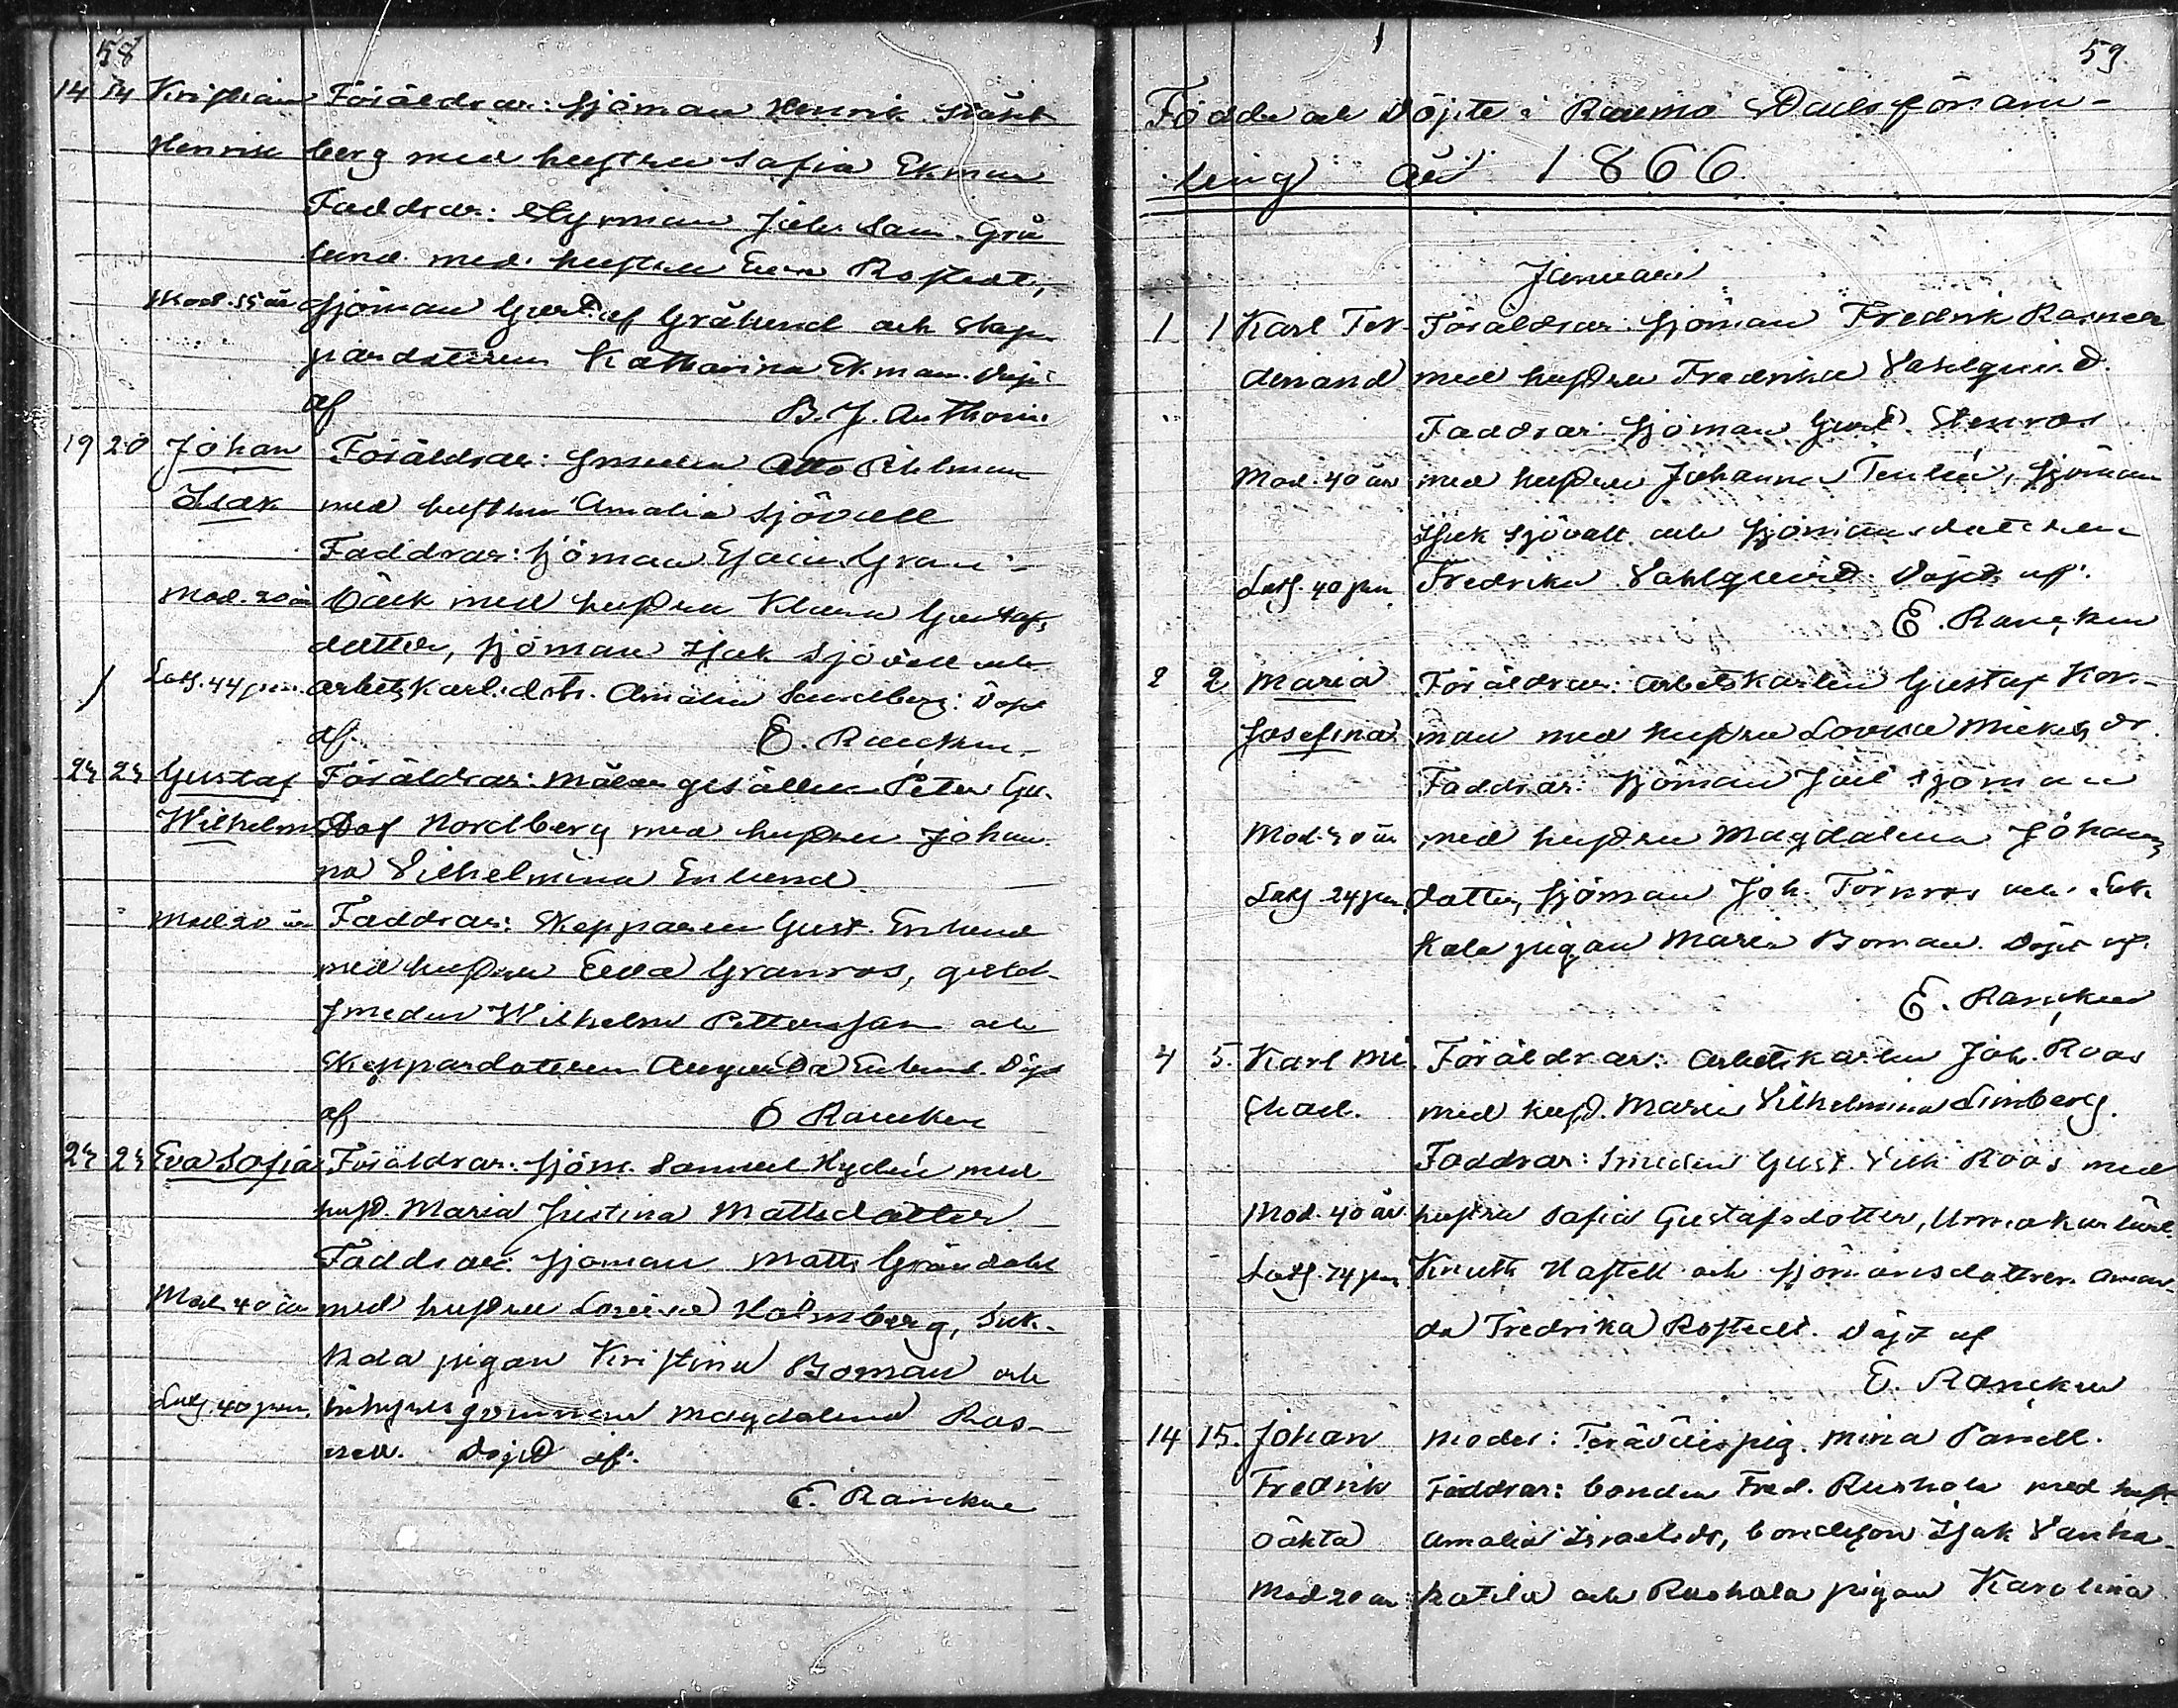 58
14 14 Kristian Föräldrar: Sjöman Henrik
Henrik berg med hustru Sofia Ekman
Faddrar: Styrman Joh. Sam. Grö
lund med hustru Eva Rostedt,
Mod. 55 år Sjöman Gustaf Grölund och Skep-
pardottren Katharina Ekman. Döpt
af B. J. Anthoni
19 20 Johan Föräldrar: Smeden Otto Pihlman
Isak med hustru Amalia Sjövall
Faddrar: Sjöman Esaias Gran-
Mod. 20 år bäck med hustru Klara Gustafs
dotter, Sjöman Isak Sjövall och
Latg. 44 pen. arbetskarlsdotr. Amalia Sundberg: Döpt
af E. Rancken
23 23 Gustaf Föräldrar: Målaregesällen Peter Gu-
Wilhelm staf Nordberg med hustru Johan-
na Vilhelmina Enlund
Mod. 20 år Faddrar: Skepparen Gust. Enlund
med hustru Eva Granros, guld-
smeden Wilhelm Pettersson och
Skeppardottren Augusta Enlund. Döpt
af E Rancken
23 23 Eva Sofia Föräldrar. Sjöm. Samuel Hydén med
hust. Maria Justina Mattsdotter
Faddrar: Sjöman Matts Gröndahl
Mod. 40 år med hustru Lovisa Holmberg, Suk-
kala pigan Kristina Boman och
Latg. 40 pen. inhyses qvinnan Magdalena Ros-
nell. Döpt af.
E. Rancken
59
Födde och Döpte i Raumo Stadsförsam-
ling år 1866.
Januari
1 1 Karl Fer- Föräldrar: Sjöman Fredrik Rosnell
dinand med hustru Fredrika Vahlqvist.
Faddrar: Sjöman Gust. Stenros
Mod. 40 år med hustru Johanna Teulin, Sjöman
Isak Sjövall och Sjömansdottren
Latg. 40 pen Fredrika Vahlqvist. Döpt af.
E. Rancken
2 2 Maria Föräldrar: Arbetskarlen Gustaf Kor-
Josefina man med hustru Lovisa Mickels dr.
Faddrar: Sjöman Joel Sjöman
Mod. 30 år med hustru Magdalena Johans
Latg. 24 pen. dotter, Sjöman Joh. Törnros och Suk-
kala pigan Maria Boman. Döpt af.
E. Rancken
4 5. Karl Mi- Föräldrar: Arbetskarlen Joh. Roos
chael. med hust. Maria Vilhelmina Limberg.
Faddrar: Smeden Gust. Vilh. Roos med
Mod. 40 år hustru Sofia Gustafsdotter, Urmakarlärl.
Latg. 74 pen Knuth Hastell och Sjömansdottren Aman-
da Fredrika Rostedt. Döpt af
E. Rancken
14 15. Johan Moder: pig. Mina Panell.
Fredrik Faddrar: bonden Fred. Rushola med hust
oäkta Amalia Israelsdr, bondeson Isak Vanha-
Mod 20 år katila och Rushola pigan Karolina